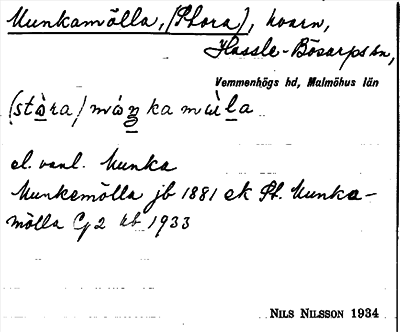 Munkamölla, (Stora), kvarn,
Hassle-Bösarps sn,
Vemmenhögs hd, Malmöhus län
(stò̱ra) mòŋ̱kamùḻa
el. vanl. Munka
Munkemölla jb 1881 ek St. Munka-
mölla Cg2 kb 1933
NILS NILSSON 1934